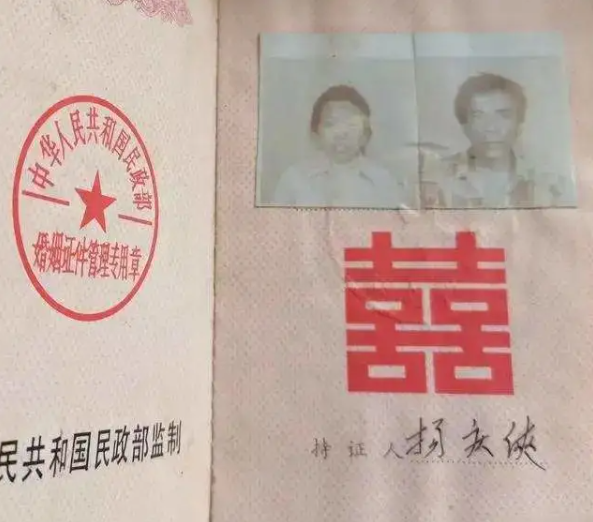 中华人民共和国民政部
婚姻证件管理专用章
民共和国民政部监制
囍
持证人 杨庆俠